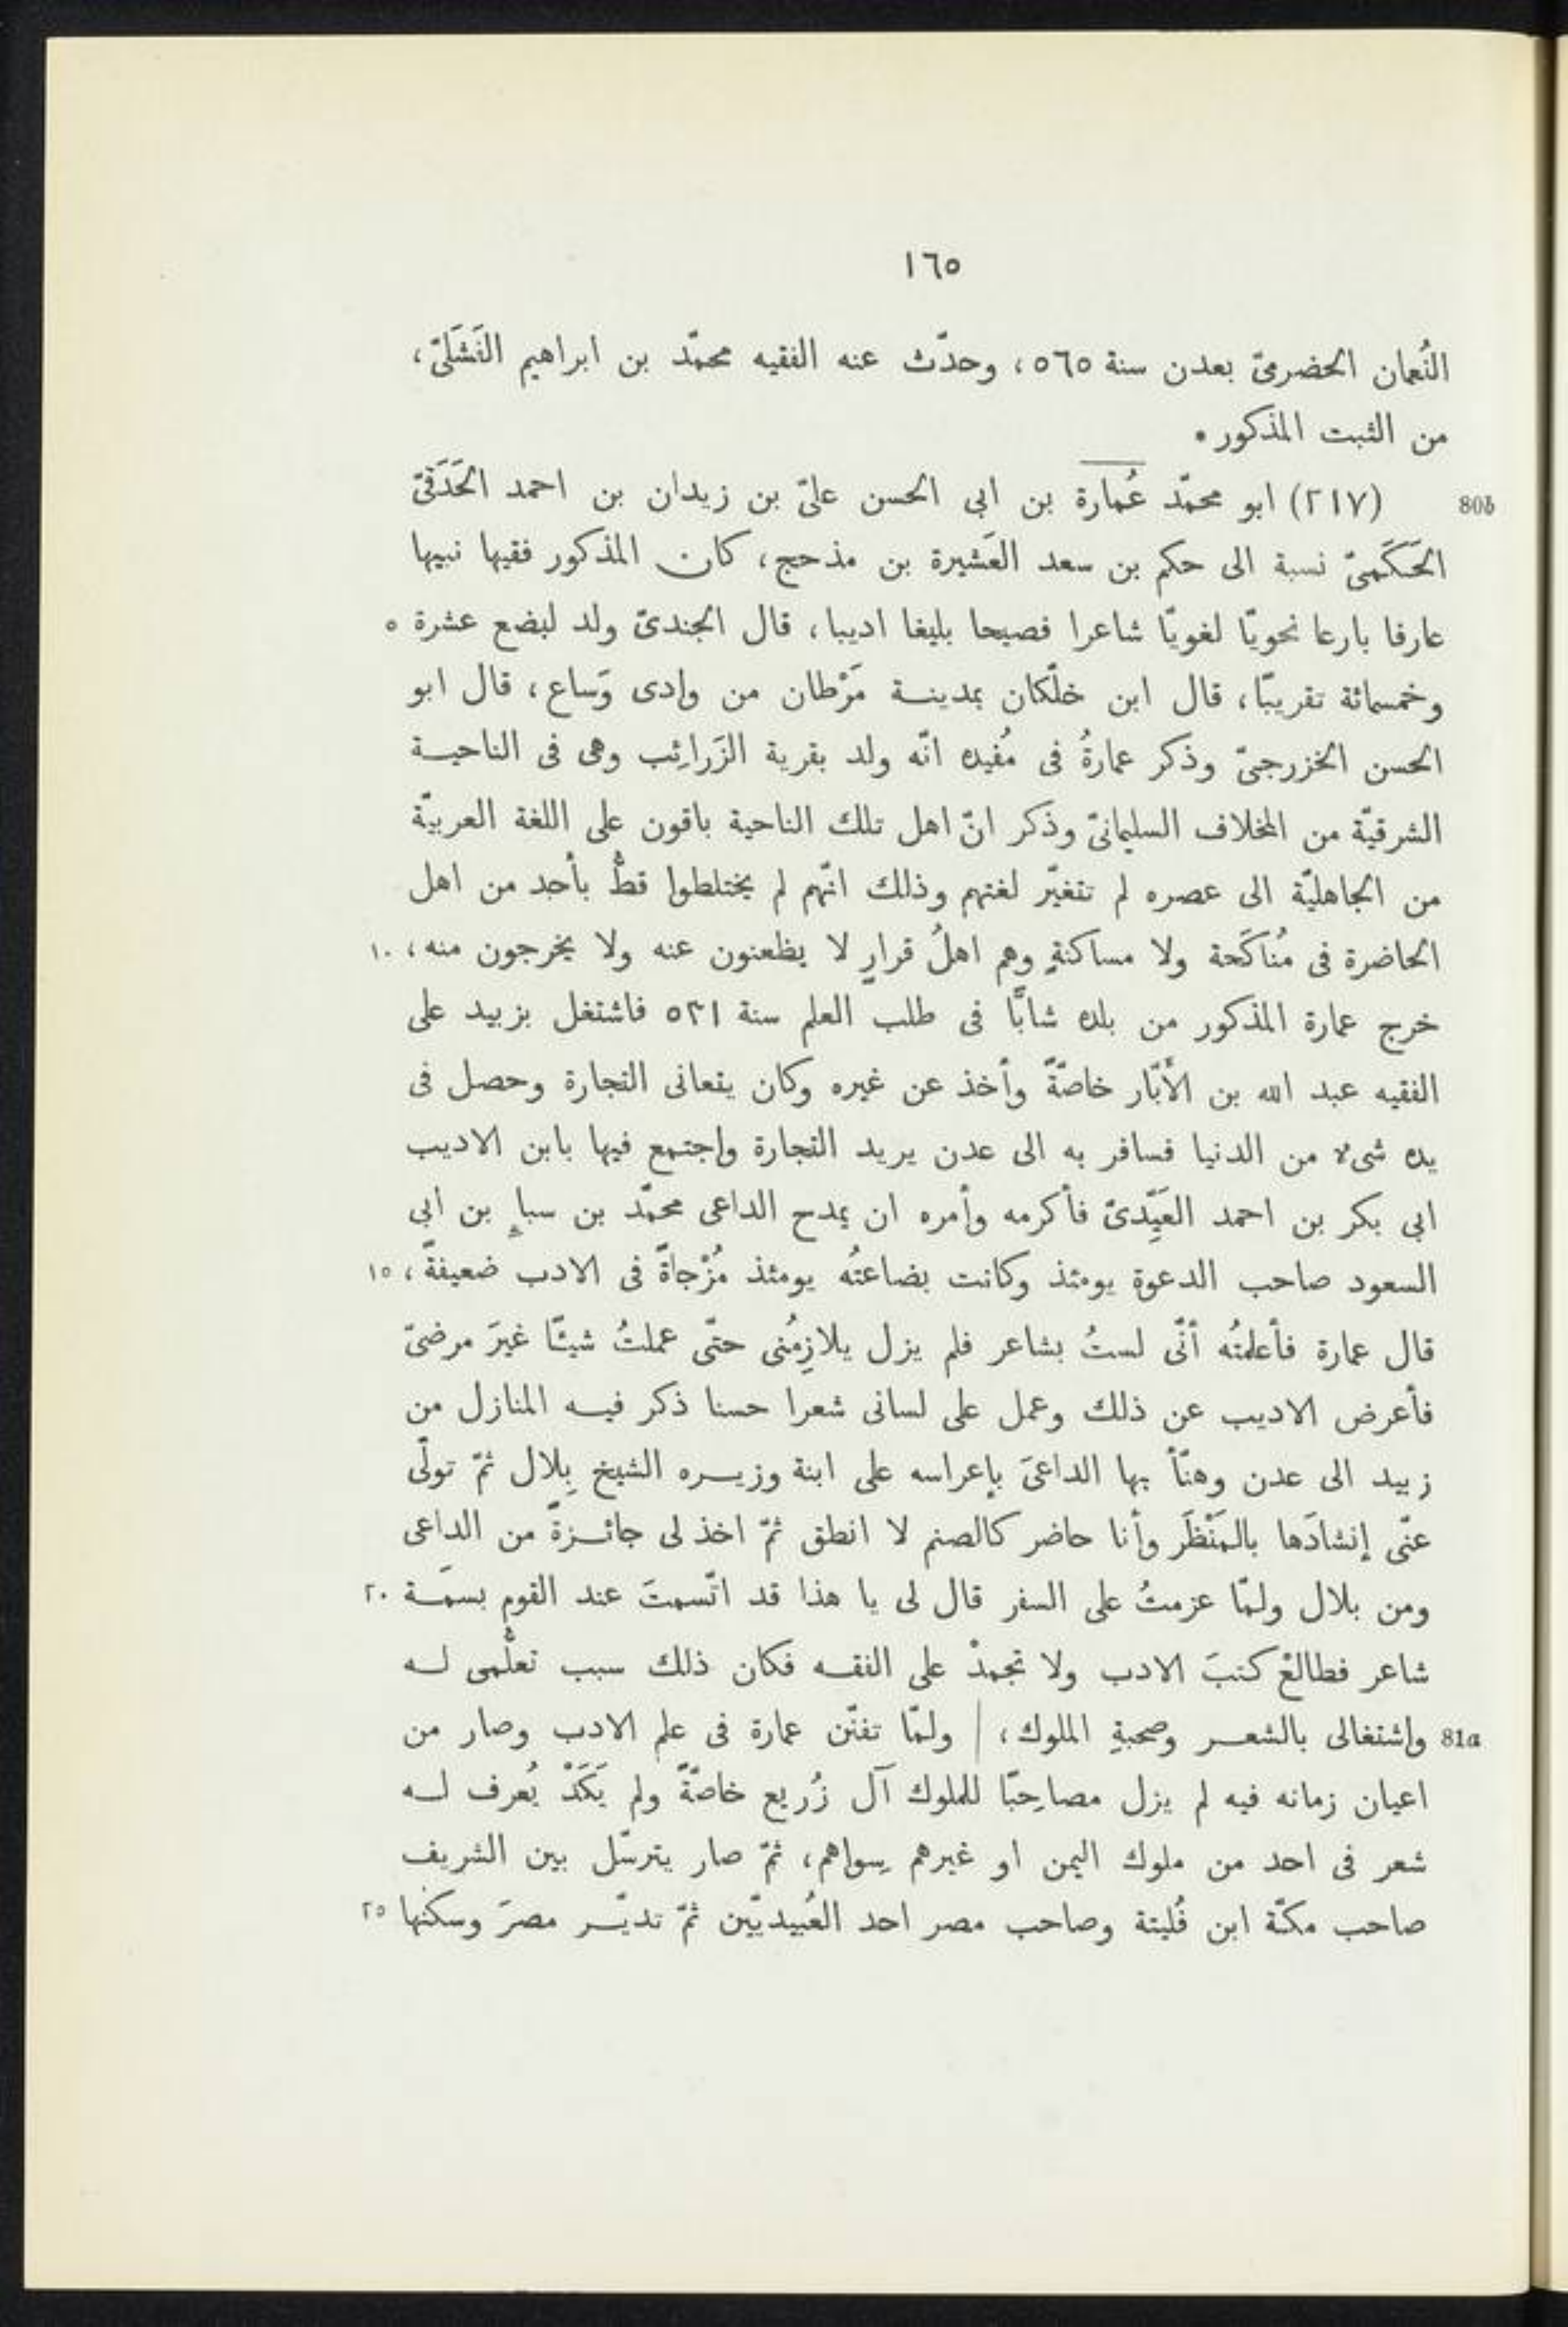 ١٦٥
النُعمان الحضرمىّ بعدن سنة ٥٦٥، وحدّث عنه الفقيه محمّد بن ابراهيم النَشَلىّ،
من الثبت المذكور ٠
80b (٢١٧) ابو محمّد عُمارة بن ابى الحسن علىّ بن زيدان بن احمد الحَدَقىّ
الحَكَمىّ نسبة الى حكم بن سعد العَشيرة بن مذحج، كان المذكور فقيها نبيها
عارفا بارعا نحويّا لغويّا شاعرا فصيحا بليغا اديبا، قال الجندىّ ولد لبضع عشرة ٥
وخمسمائة تقريبّا، قال ابن خلّكان بمدينة مَرْطان من وادى وَساع، قال ابو
الحسن الخزرجىّ وذكر عمارةُ فى مُفيده انّه ولد بقرية الزَرائِب وهى فى الناحية
الشرقيّة من المخلاف السليمانىّ وذكر انّ اهل تلك الناحية باقون على اللغة العربيّة
من الجاهليّة الى عصره لم تتغيّر لغتهم وذلك انّهم لم يختلطوا قطُّ بأحد من اهل
الحاضرة فى مُناكَحة ولا مساكنةٍ وهم اهلُ قرارٍ لا يظعنون عنه ولا يخرجون منه، ١٠
خرج عمارة المذكور من بلده شابًّا فى طلب العلم سنة ٥٣١ فاشتغل بزبيد على
الفقيه عبد الله بن الأَبّار خاصّةً وأخذ عن غيره وكان يتعانى التجارة وحصل فى
يده شىء من الدنيا فسافر به الى عدن يريد التجارة واجتمع فيها بابن الاديب
ابى بكر بن احمد العَيِّدىّ فأكرمه وأمره ان يمدح الداعى محمّد بن سباءٍ بن ابى
السعود صاحب الدعوة يومئذ وكانت بضاعتُه يومئذ مُزْجاةً فى الادب ضعيفةً، ١٥
قال عمارة فأعلمتُه أنّى لستُ بشاعر فلم يزل يلازِمُنى حتّى عملتُ شيئًا غيرَ مرضىّ
فأعرض الاديب عن ذلك وعمل على لسانى شعرا حسنا ذكر فيه المنازل من
زبيد الى عدن وهنّأ بها الداعىَ بإعراسه على ابنة وزيره الشيخ بِلال ثمّ تولّى
عنّى إنشادَها بالمَنْظَر وأنا حاضر كالصنم لا انطق ثمّ اخذ لى جائزةً من الداعى
ومن بلال ولمّا عزمتُ على السفر قال لى يا هذا قد اتّسمتَ عند القوم بسمَة ٢٠
شاعر فطالعْ كتبَ الادب ولا تجمدْ على الفقه فكان ذلك سبب تعلُّمى له
81a واشتغالى بالشعر وصحبةِ الملوك، | ولمّا تفنّن عمارة فى علم الادب وصار من
اعيان زمانه فيه لم يزل مصاحِبًا للملوك آل زُريع خاصّةً ولم يَكَدْ يُعرف له
شعر فى احد من ملوك اليمن او غيرهم سِواهم، ثمّ صار يترسّل بين الشريف
صاحب مكّة ابن فُليتة وصاحب مصر احد العُبيديّين ثمّ تديّر مصرَ وسكنها ٢٥